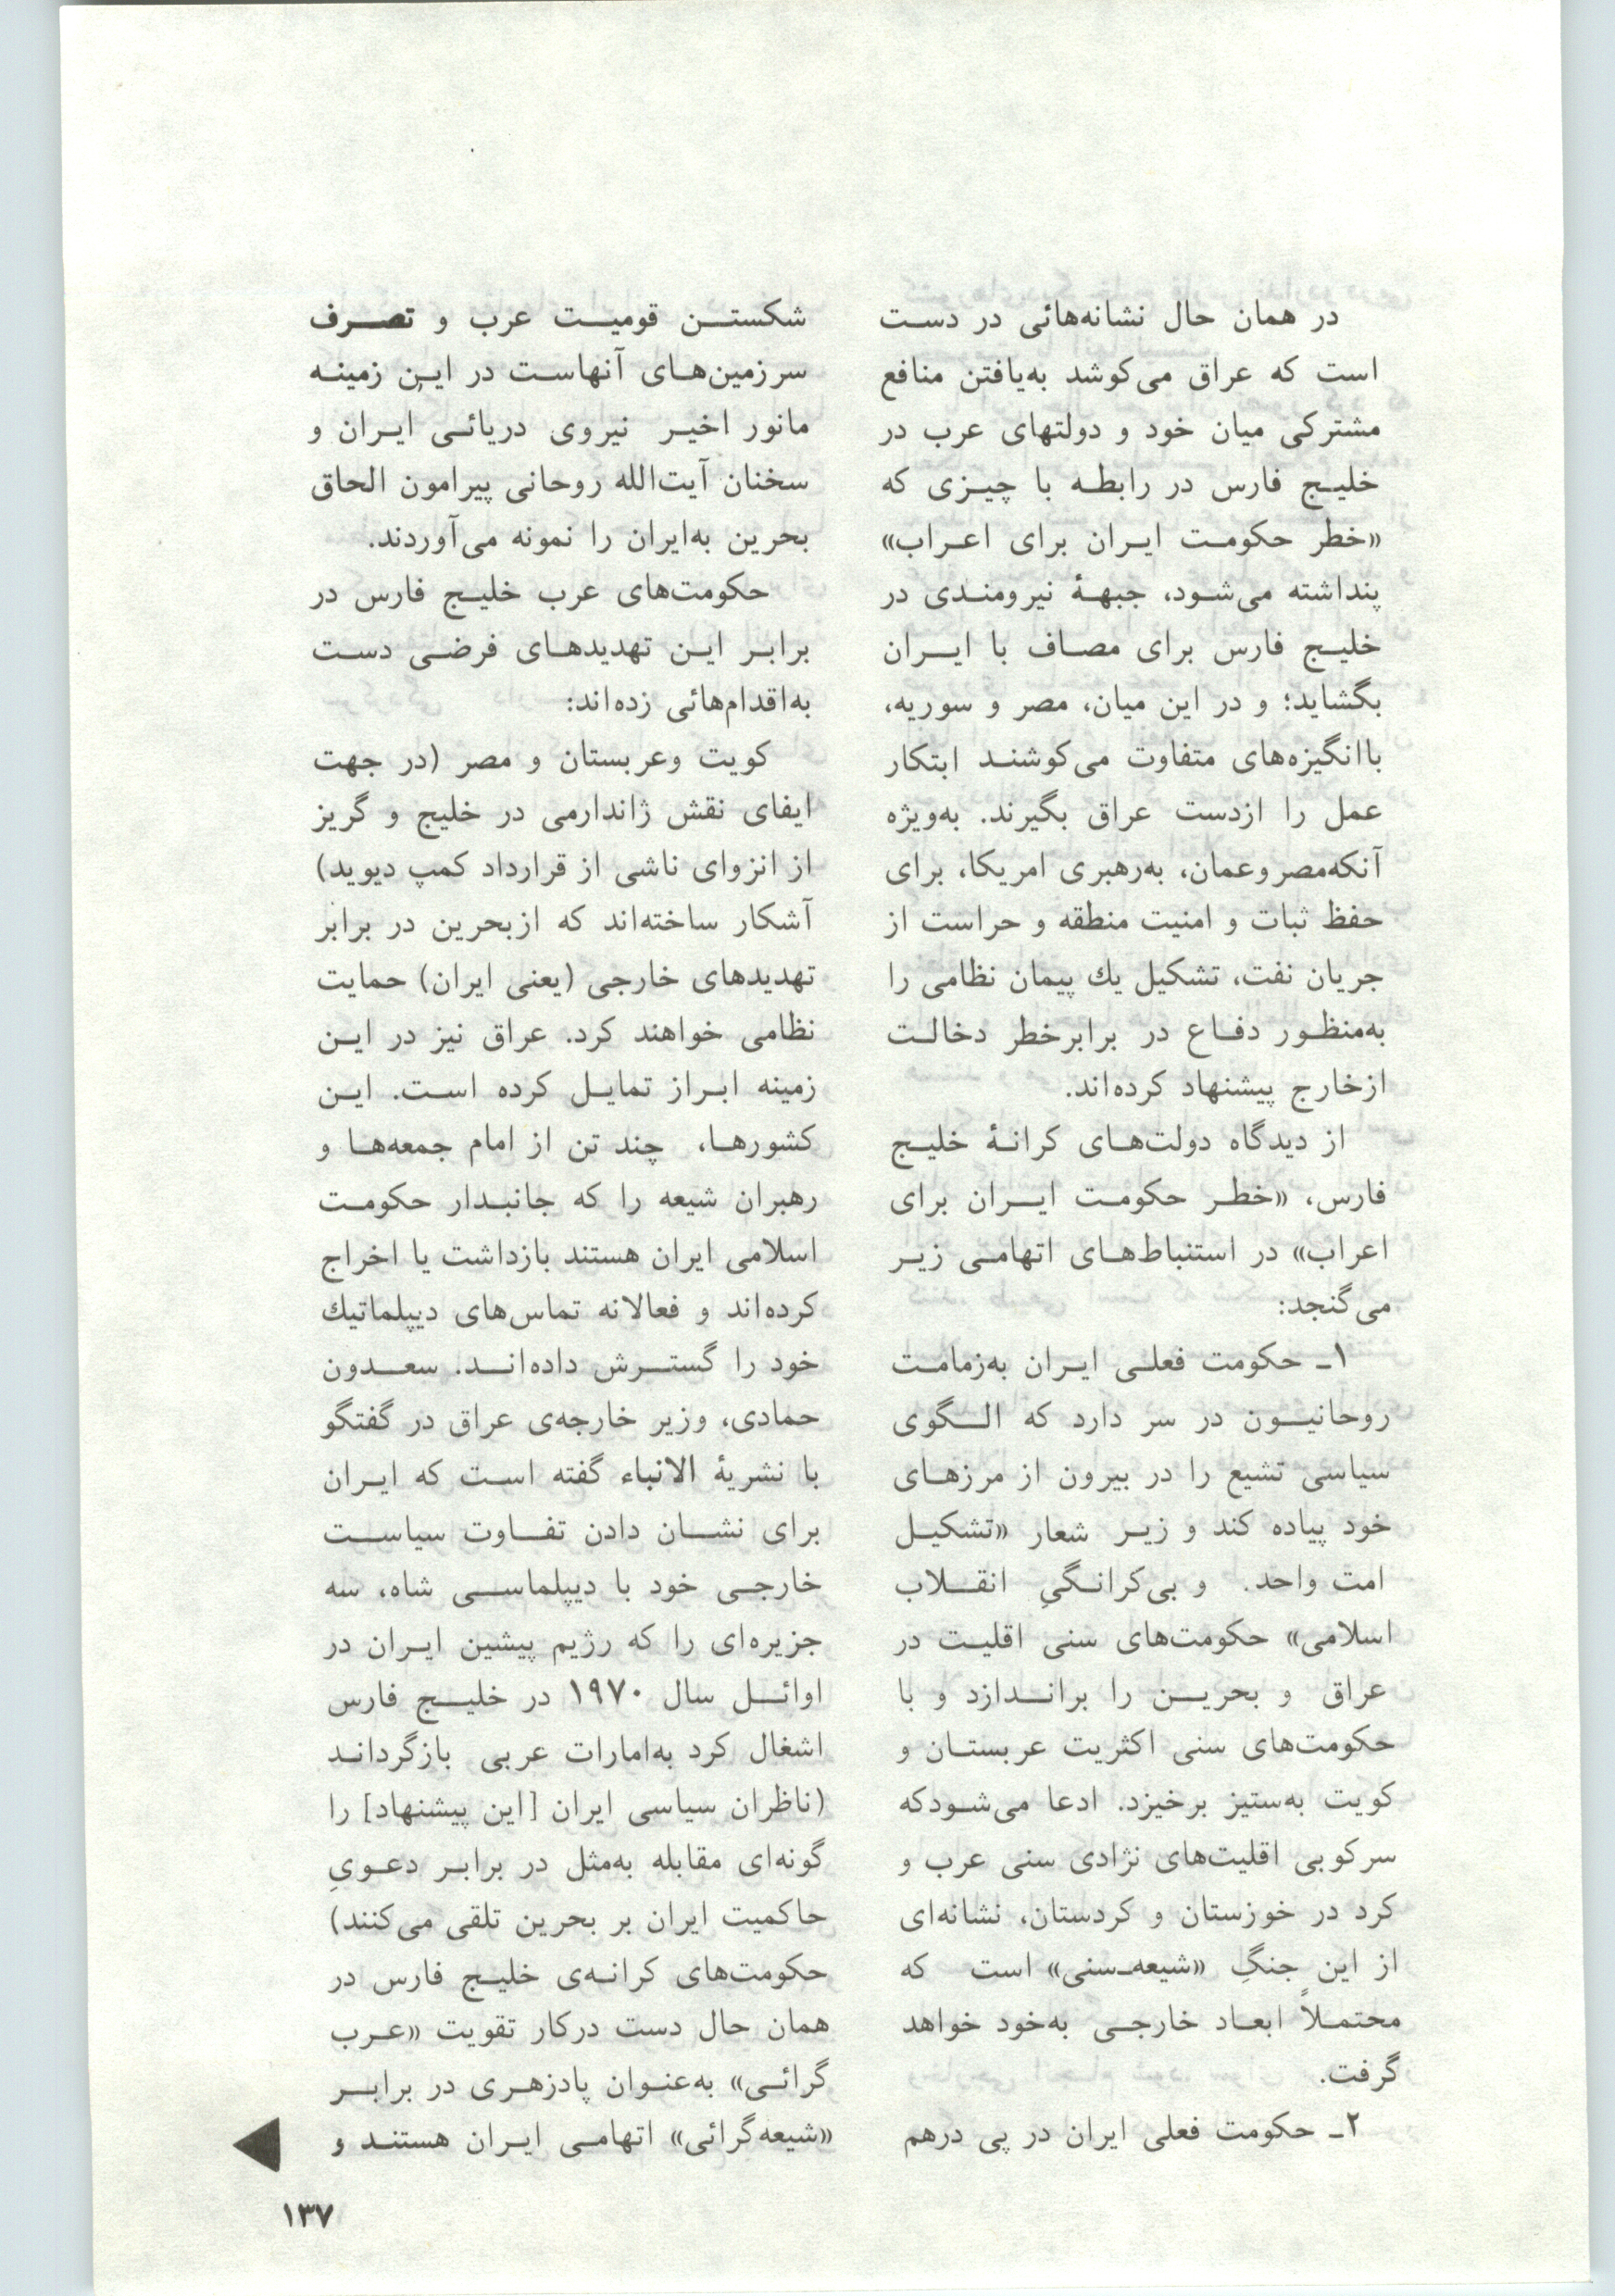 در همان حال نشانه‌هائی در دست
است که عراق می‌کوشد به‌یافتن منافع
مشترکی میان خود و دولتهای عرب در
خلیج فارس در رابطه با چیزی که
«خطر حکومت ایران برای اعراب»
پنداشته می‌شود، جبههٔ نیرومندی در
خلیج فارس برای مصاف با ایران
بگشاید؛ و در این میان، مصر و سوریه،
باانگیزه‌های متفاوت می‌کوشند ابتکار
عمل را ازدست عراق بگیرند. به‌ویژه
آنکه‌مصروعمان، به‌رهبری امریکا، برای
حفظ ثبات و امنیت منطقه و حراست از
جریان نفت، تشکیل یك پیمان نظامی را
به‌منظور دفاع در برابرخطر دخالت
ازخارج پیشنهاد کرده‌اند.
از دیدگاه دولت‌های کرانهٔ خلیج
فارس، «خطر حکومت ایران برای
اعراب» در استنباط‌های اتهامی زیر
می‌گنجد:
۱ـ حکومت فعلی ایران به‌زمامت
روحانیون در سر دارد که الگوی
سیاسی تشیع را در بیرون از مرزهای
خود پیاده کند و زیر شعار «تشکیل
امت واحد. و بی‌کرانگیِ انقلاب
اسلامی» حکومت‌های سنی اقلیت در
عراق و بحرین را براندازد و با
حکومت‌های سنی اکثریت عربستان و
کویت به‌ستیز برخیزد. ادعا می‌شودکه
سرکوبی اقلیت‌های نژادی سنی عرب و
کرد در خوزستان و کردستان، نشانه‌ای
از این جنگِ «شیعه‌ـ‌سنی» است که
محتملاً ابعاد خارجی به‌خود خواهد
گرفت.
۲ـ حکومت فعلی ایران در پی درهم
شکستن قومیت عرب و تصرف
سرزمین‌های آنهاست در این زمینه
مانور اخیر نیروی دریائی ایران و
سخنان آیت‌الله روحانی پیرامون الحاق
بحرین به‌ایران را نمونه می‌آوردند.
حکومت‌های عرب خلیج فارس در
برابر این تهدیدهای فرضی دست
به‌اقدام‌هائی زده‌اند:
کویت وعربستان و مصر (در جهت
ایفای نقش ژاندارمی در خلیج و گریز
از انزوای ناشی از قرارداد کمپ دیوید)
آشکار ساخته‌اند که ازبحرین در برابر
تهدیدهای خارجی (یعنی ایران) حمایت
نظامی خواهند کرد. عراق نیز در این
زمینه ابراز تمایل کرده است. این
کشورها، چند تن از امام جمعه‌ها و
رهبران شیعه را که جانبدار حکومت
اسلامی ایران هستند بازداشت یا اخراج
کرده‌اند و فعالانه تماس‌های دیپلماتیك
خود را گسترش داده‌اند. سعدون
حمادی، وزیر خارجه‌ی عراق در گفتگو
با نشریهٔ الانباء گفته است که ایران
برای نشان دادن تفاوت سیاست
خارجی خود با دیپلماسی شاه، سه
جزیره‌ای را که رژیم پیشین ایران در
اوائل سال ۱۹۷۰ در خلیج فارس
اشغال کرد به‌امارات عربی بازگرداند
(ناظران سیاسی ایران [این پیشنهاد] را
گونه‌ای مقابله به‌مثل در برابر دعویِ
حاکمیت ایران بر بحرین تلقی می‌کنند)
حکومت‌های کرانه‌ی خلیج فارس در
همان حال دست درکار تقویت «عرب
گرائی» به‌عنوان پادزهری در برابر
«شیعه‌گرائی» اتهامی ایران هستند و
۱۳۷